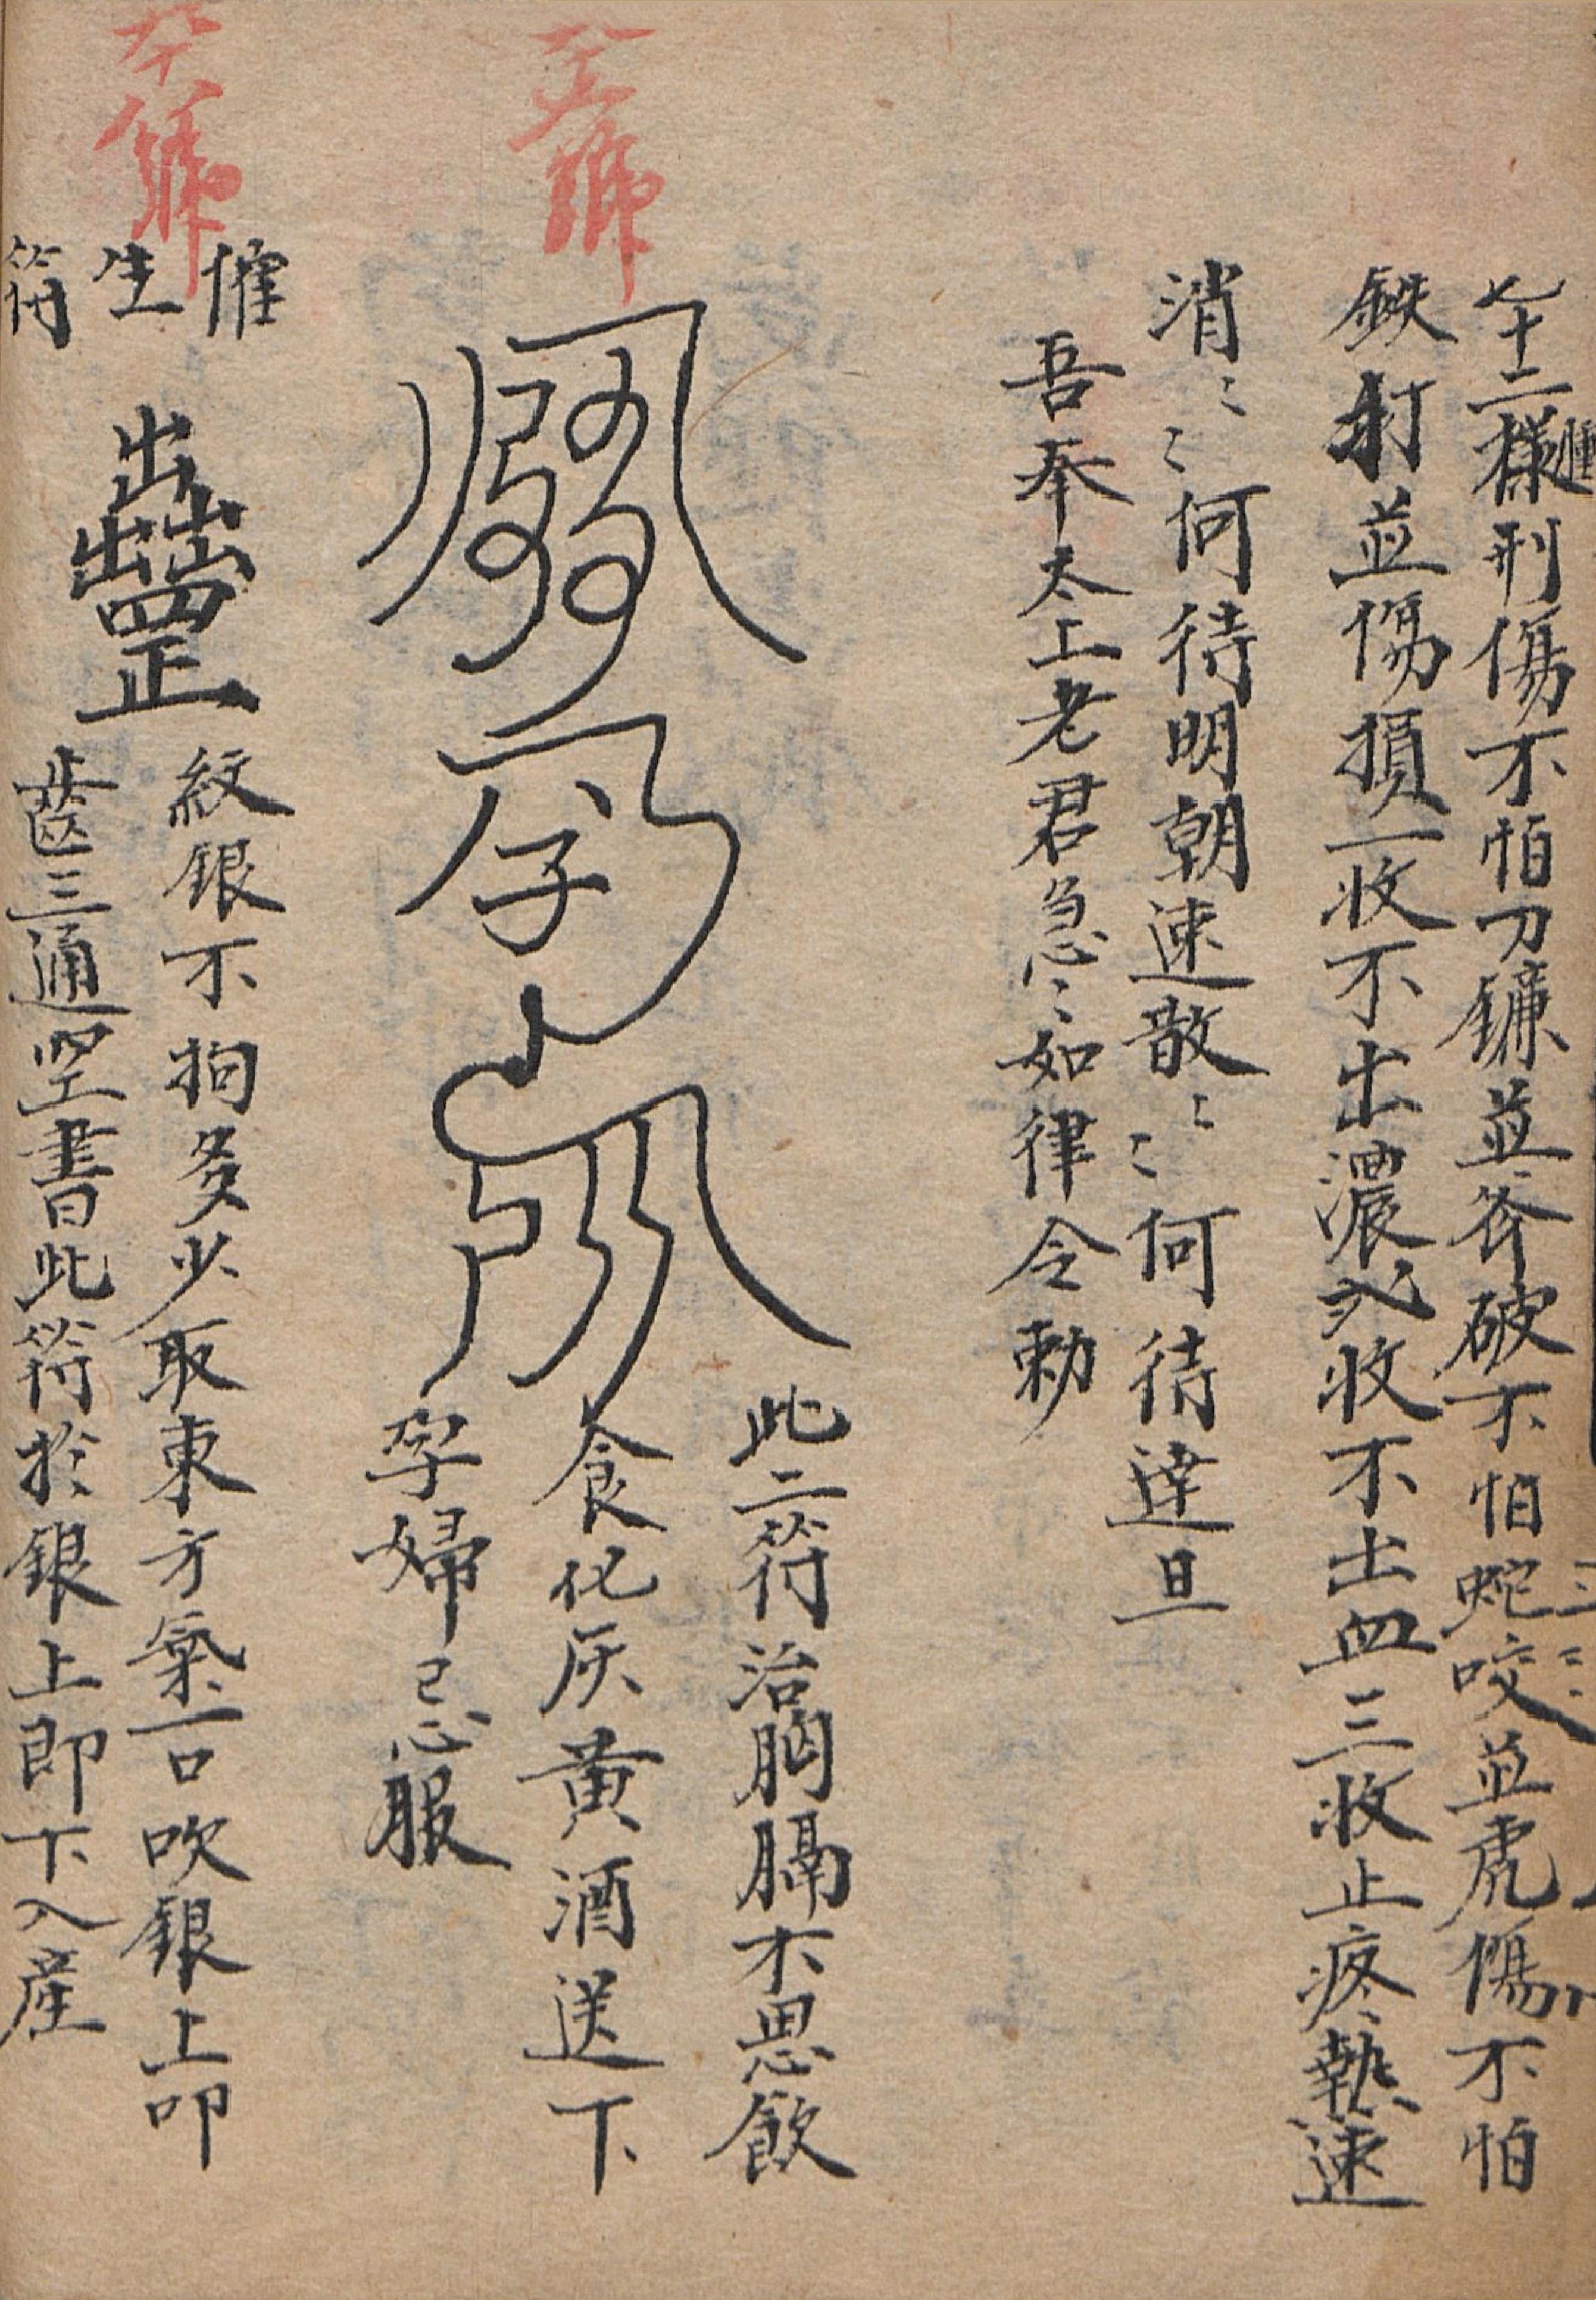 七十二樣刑傷不怕刀鐮並斧破不怕蛇咬並虎傷不怕
鉄打並傷損一收不出濃弍收不出血三收止疼熱速
消〻〻何待明朝速散〻〻何待達旦
吾奉太上老君急〻如律令勅
此二符治胸膈不思飲
食化灰黄酒送下
孕婦忌服
催生符
紋銀不拘多少取東方氣一口吹銀上叩
齒三通望書此符於銀上即下入産